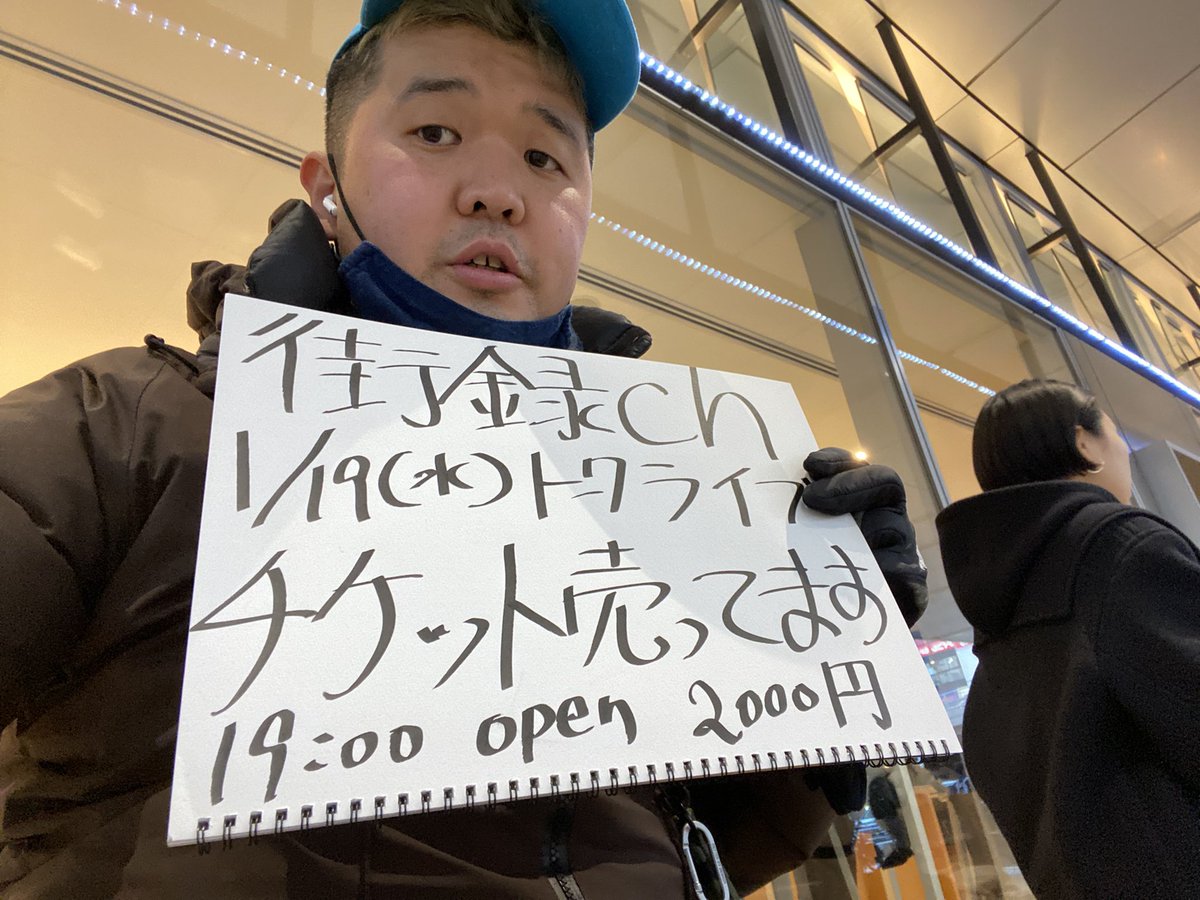 街録ch
1/19(水)トークライブ
チケット売ってます
19:00 open 2000円